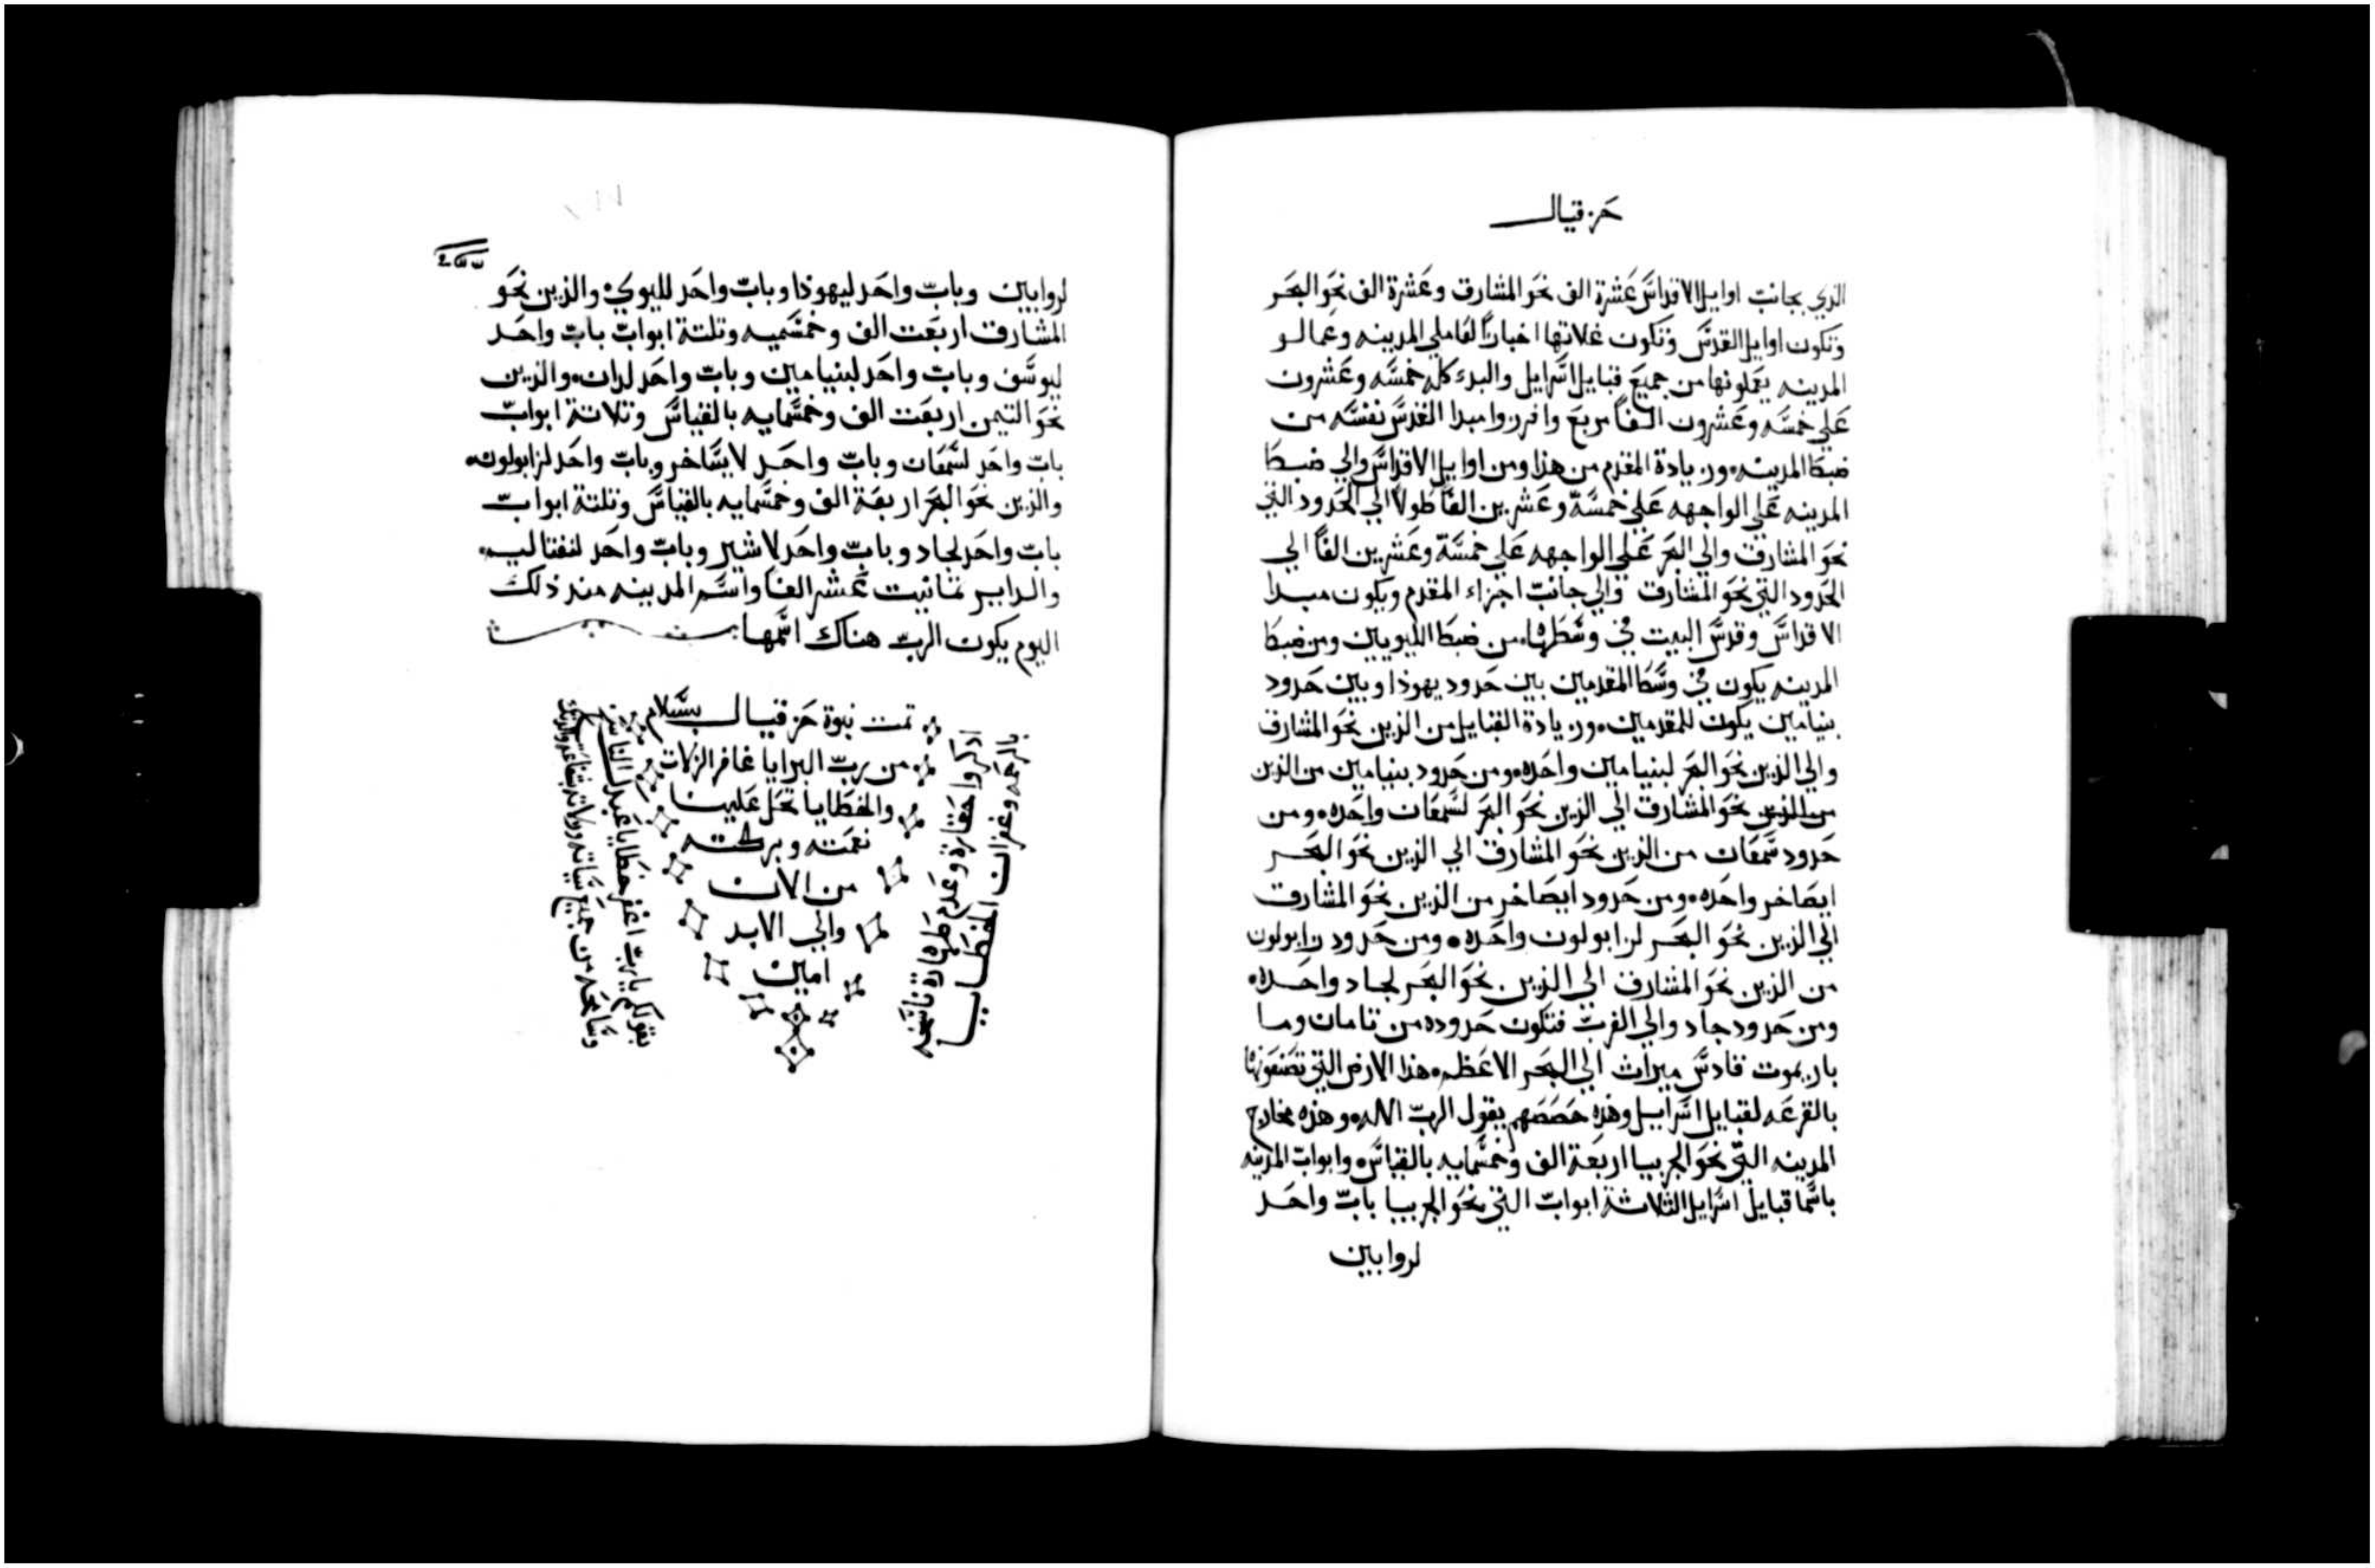 حزقيال
الذي بجانب اوايل الاقداس عشرة الف نحو المشارق وعشرة الف نحو البحر
وتكون اوايل القدس وتكون غلاتها اخبازاً لعاملي المدينه وعمالو
المدينه يعملونها من جميع قبايل اسرايل والبدء كله خمسه وعشرون
علي خمسه وعشرون الفاً مربع وافرزوا مبدا القدس نفسه من
ضبط المدينه وزيادة المقدم من هذا ومن اوايل الاقداس والي ضبط
المدينه علي الواجهه علي خمسة وعشرين الفاً طولاً الي الحدود التي
نحو المشارق والي البحر علي الواجهه علي خمسة وعشرين الفاً الي
الحدود التي نحو المشارق والي جانب اجزاء المقدم ويكون مبدا
الاقداس وقدس البيت في وسطها من ضبط الليويين ومن ضبط
المدينه يكون في وسط المقدمين بين حدود يهوذا وبين حدود
بنيامين يكون للمقدمين وزيادة القبايل من الذين نحو المشارق
والي الذين نحو البحر لبنيامين واحده ومن حدود بنيامين من الذين
من الذين نحو المشارق الي الذين نحو البحر لسمعان واحده ومن
حدود سمعان من الذين نحو المشارق الي الذين نحو البحر
ايصاخر واحده ومن حدود ايصاخر من الذين نحو المشارق
الي الذين نحو البحر لزابولون واحده ومن حدود زابولون
من الذين نحو المشارق الي الذين نحو البحر لجاد واحده
ومن حدود جاد والي الغرب فتكون حدوده من تامان وما
باريموت قادس ميراث الي البحر الاعظم هذا الارض التي تصنفونها
بالقرعه لقبايل اسرايل وهذه حصصهم يقول الرب الاله وهذه مخارج
المدينه التي نحو الجربيا اربعة الف وخمسمايه بالقياس وابواب المدينه
باسما قبايل اسرايل الثلاثة ابواب التي نحو الجربيا باب واحد
لروابين
لروابين وباب واحد ليهوذا وباب واحد لليوي والذين نحو
المشارق اربعت الف وخمسميه وتلتة ابواب باب واحد
ليوسف وباب واحد لبنيامين وباب واحد لدان والذين
نحو التيمن اربعت الف وخمسمايه بالقياس وتلاتة ابواب
باب واحد لسمعان وباب واحد لايساخر وباب واحد لزابولون
والذين نحو البحر اربعة الف وخمسمايه بالقياس وتلتة ابواب
باب واحد لجاد وباب واحد لاشير وباب واحد لنفتاليم
والداير تمانيت عشر الفا واسم المدينه منذ ذلك
اليوم يكون الرب هناك اسمها
تمت نبوة حزقيال بسلام
من رب البرايا غافر الزلات
والخطايا تحل علينا
نعمته وبركته
من الان
والي الابد
امين
اذكروا حقارة وعدم طهارة ناسخه
بالرحمه وغفران الخطايا
بقولكم يارب اغفر خطايا عبدك
وسامحه من جميع سياته وزلاته بشفاعة